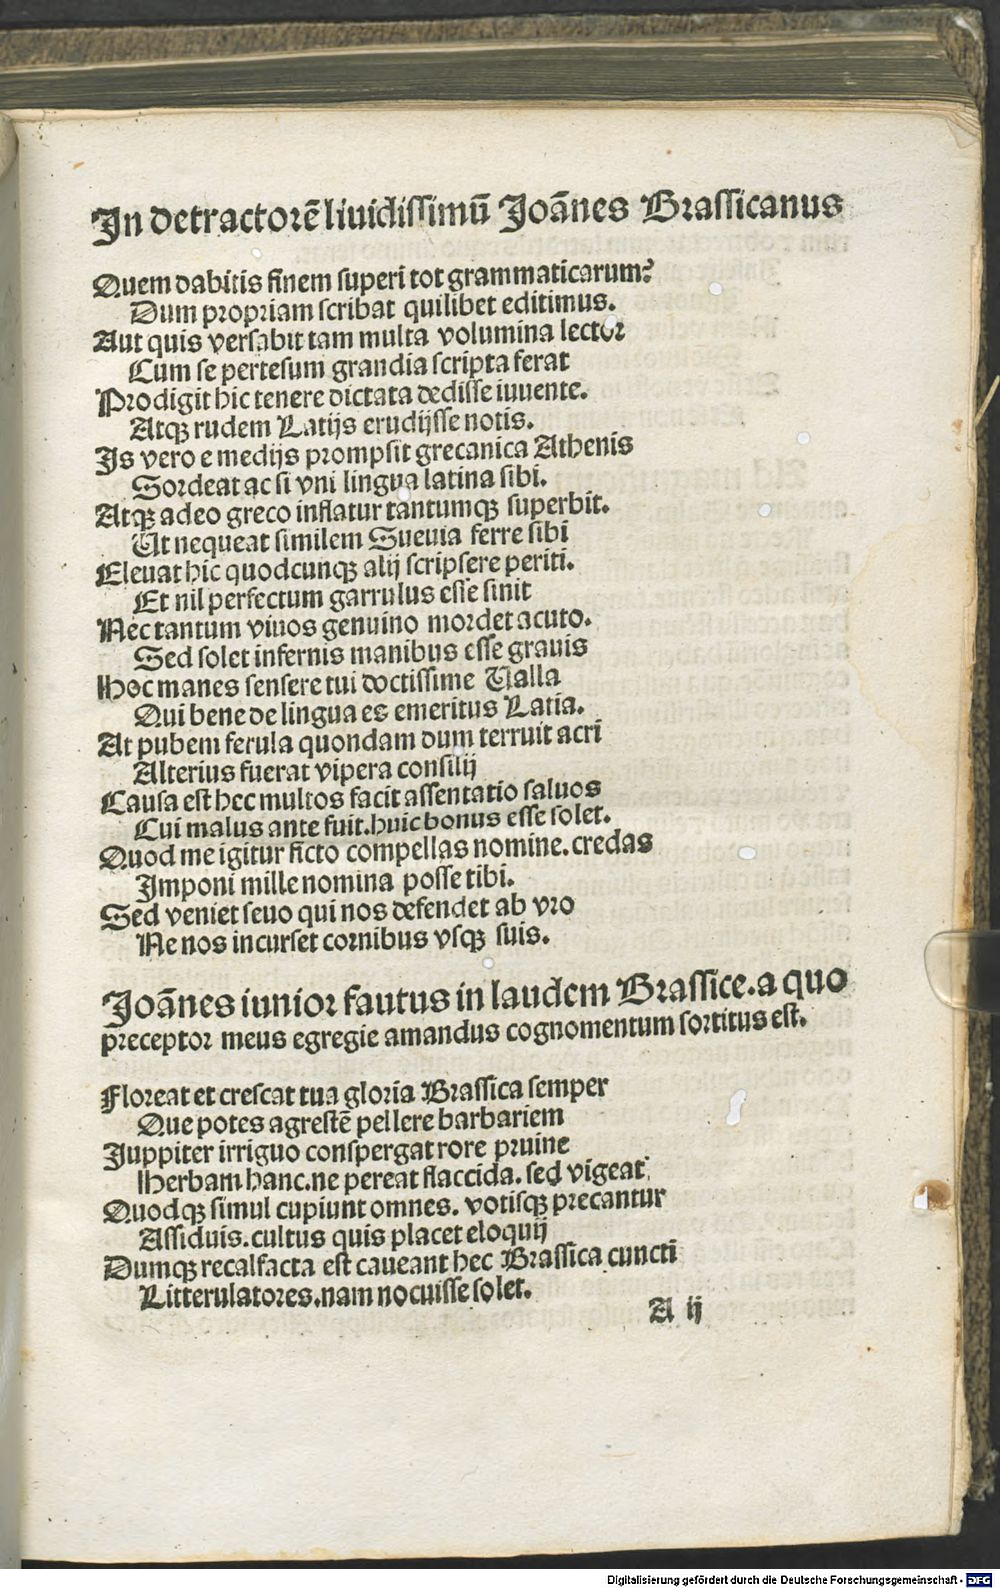 In detractorē liuidissimū Joānes Brassicanus
Quem dabitis finem superi tot grammaticarum?
Dum propriam scribat quilibet editimus.
Aut quis versabit tam multa volumina lector
Cum se pertesum grandia scripta ferat
Prodigit hic tenere dictata dedisse iuuente.
Atqꝫ rudem Latijs erudijsse notis.
Is vero e medijs prompsit grecanica Athenis
Sordeat ac si vni lingua latina sibi.
Atqꝫ adeo greco inflatur tantumqꝫ superbit.
Ut nequeat similem Sueuia ferre sibi
Eleuat hic quodcunqꝫ alij scripsere periti.
Et nil perfectum garrulus esse sinit
Nec tantum viuos genuino mordet acuto.
Sed solet infernis manibus esse grauis
Hoc manes sensere tui doctissime Ualla
Qui bene de lingua es emeritus Latia.
At pubem ferula quondam dum terruit acri
Alterius fuerat vipera consilij
Causa est hec multos facit assentatio saluos
Cui malus ante fuit.huic bonus esse solet.
Quod me igitur ficto compellas nomine.credas
Imponi mille nomina posse tibi.
Sed veniet seuo qui nos defendet ab vro
Ne nos incurset cornibus vsqꝫ suis.
Joānes iunior fautus in laudem Brassice.a quo
preceptor meus egregie amandus cognomentum sortitus est.
Floreat et crescat tua gloria Brassica semper
Que potes agrestē pellere barbariem
Juppiter irriguo conspergat rore pruine
Herbam hanc.ne pereat flaccida.sed vigeat.
Quodqꝫ simul cupiunt omnes. votisqꝫ precantur
Assiduis.cultus quis placet eloquij
Dumqꝫ recalfacta est caueant hec Brassica cuncti
Litterulatores.nam nocuisse solet.
A ij
Digitalisierung gefördert durch die Deutsche Forschungsgemeinschaft - DFG